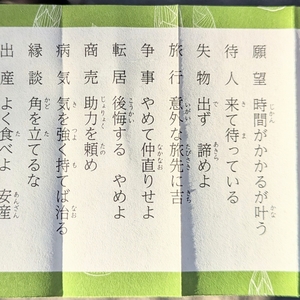 願望 時間がかかるが叶う
待人 来て待っている
失物 出ず 諦めよ
旅行 意外な旅先に吉
争事 やめて仲直りせよ
転居 後悔する やめよ
商売 助力を頼め
病気 気を強く持てば治る
縁談 角を立てるな
出産 よく食べよ 安産